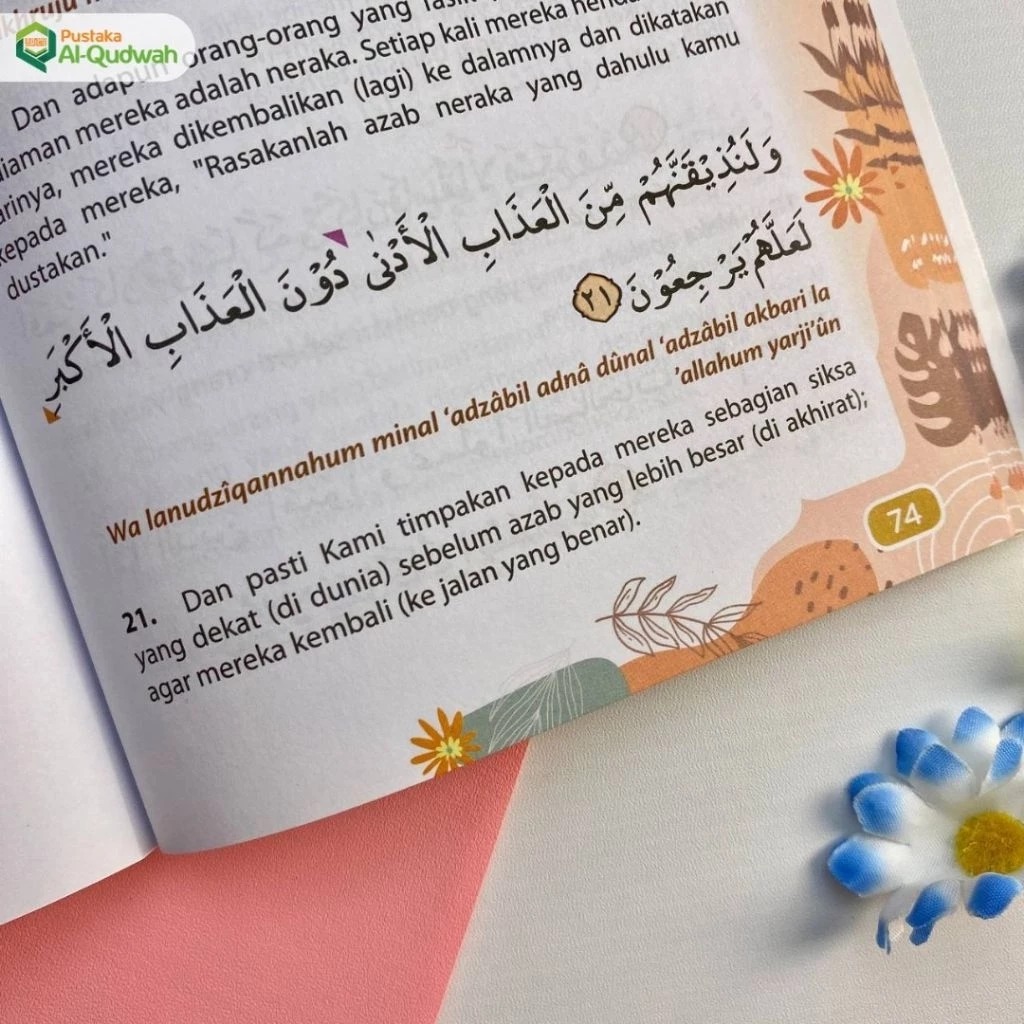 Pustaka
Al-Qudwah
Dan adapun orang-orang yang
mereka adalah neraka. Setiap kali mereka
mereka dikembalikan (lagi) ke dalamnya dan dikatakan
kepada mereka, "Rasakanlah azab neraka yang dahulu kamu
dustakan."
وَلَنُذِيْقَنَّهُمْ مِّنَ الْعَذَابِ الْأَدْنٰى دُوْنَ الْعَذَابِ الْأَكْبَرِ
لَعَلَّهُمْ يَرْجِعُوْنَ ٢١
Wa lanudzîqannahum minal ‘adzâbil adnâ dûnal ‘adzâbil akbari la
’allahum yarji’ûn
21. Dan pasti Kami timpakan kepada mereka sebagian siksa
yang dekat (di dunia) sebelum azab yang lebih besar (di akhirat);
agar mereka kembali (ke jalan yang benar).
74